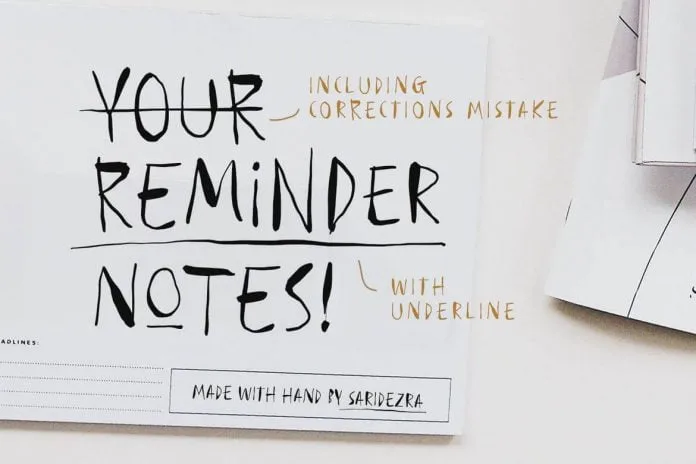 YOUR
INCLUDING
CORRECTIONS MISTAKE
REMiNDER
NOTES!
WITH
UNDERLINE
ADLINES:
MADE WITH HAND BY SARIDEZRA